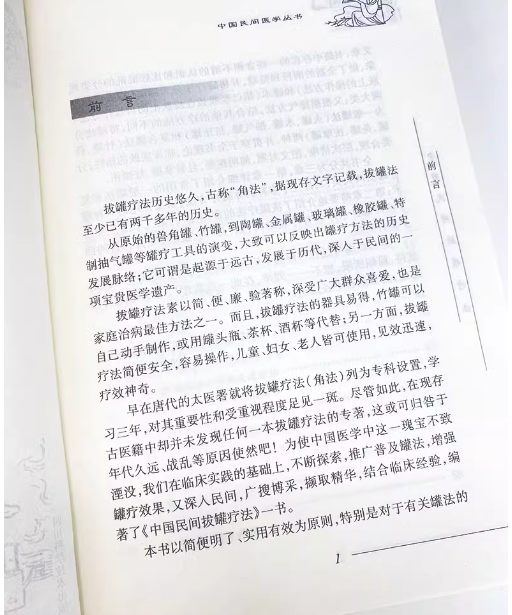 中国民间医学丛书
前言
拔罐疗法历史悠久,古称“角法”,据现存文字记载,拔罐法
至少已有两千多年的历史。
从原始的兽角罐、竹罐,到陶罐、金属罐、玻璃罐、橡胶罐、特
制抽气罐等罐疗工具的演变,大致可以反映出罐疗方法的历史
发展脉络;它可谓是起源于远古,发展于历代,深入于民间的一
项宝贵医学遗产。
拔罐疗法素以简、便、廉、验著称,深受广大群众喜爱,也是
家庭治病最佳方法之一。而且,拔罐疗法的器具易得,竹罐可以
自己动手制作,或用罐头瓶、茶杯、酒杯等代替;另一方面,拔罐
疗法简便安全,容易操作,儿童、妇女、老人皆可使用,见效迅速,
疗效神奇。
早在唐代的太医署就将拔罐疗法(角法)列为专科设置,学
习三年,对其重要性和受重视程度足见一斑。尽管如此,在现存
古医籍中却并未发现任何一本拔罐疗法的专著,这或可归咎于
年代久远、战乱等原因使然吧!为使中国医学中这一瑰宝不致
湮没,我们在临床实践的基础上,不断探索,推广普及罐法,增强
罐疗效果,又深入民间,广搜博采,撷取精华,结合临床经验,编
著了《中国民间拔罐疗法》一书。
本书以简便明了、实用有效为原则,特别是对于有关罐法的
前言
1